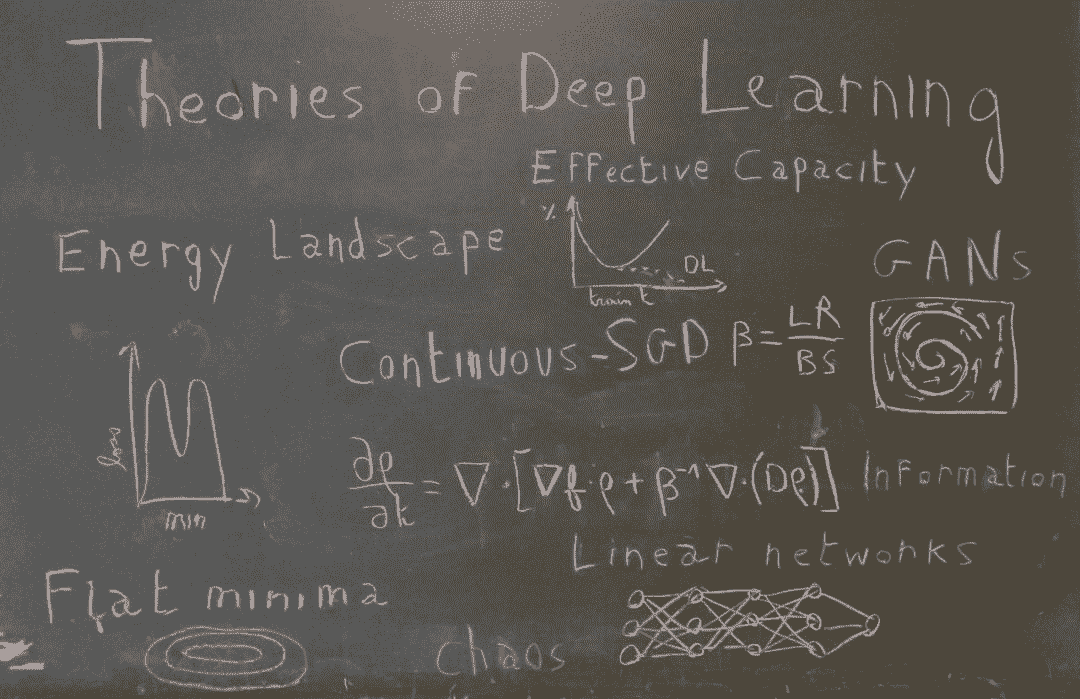 Theories of Deep Learning
Effective Capacity
Energy Landscape
%
DL
train t
GANs
Continuous-SGD β = LR/BS
loss
min
∂ρ/∂t = ∇·[∇f·ρ + β⁻¹∇·(Dρ)]
Information
Linear networks
Flat minima
Chaos